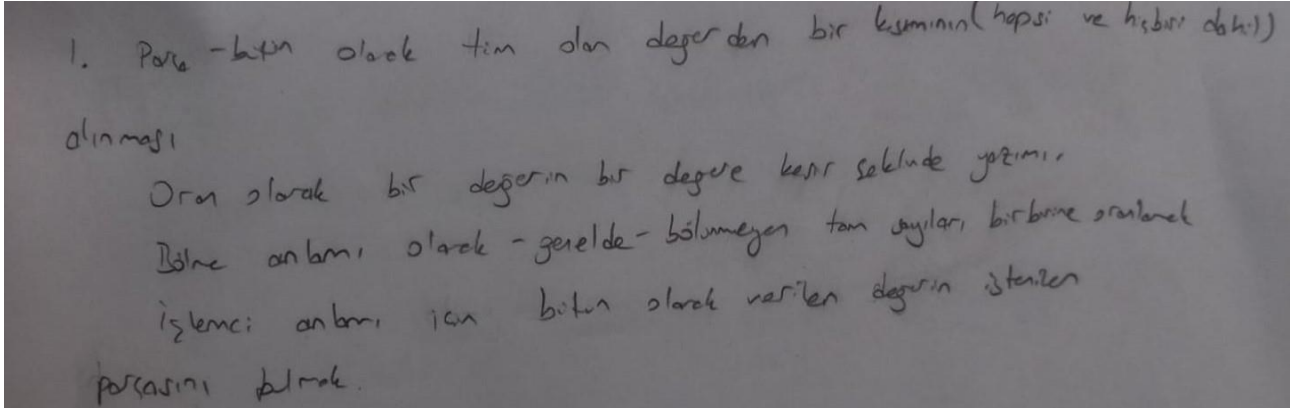 1. Parça-bütün olarak tüm olan değerden bir kısmının (hepsi ve hiçbiri dahil)
alınması
Oran olarak bir değerin bir değere kesir şeklinde yazımı.
Bölme anlamı olarak - genelde - bölünmeyen tam sayıları birbirine oranlamak
İşlemci anlamı için bütün olarak verilen değerin istenilen
parçasını bulmak.